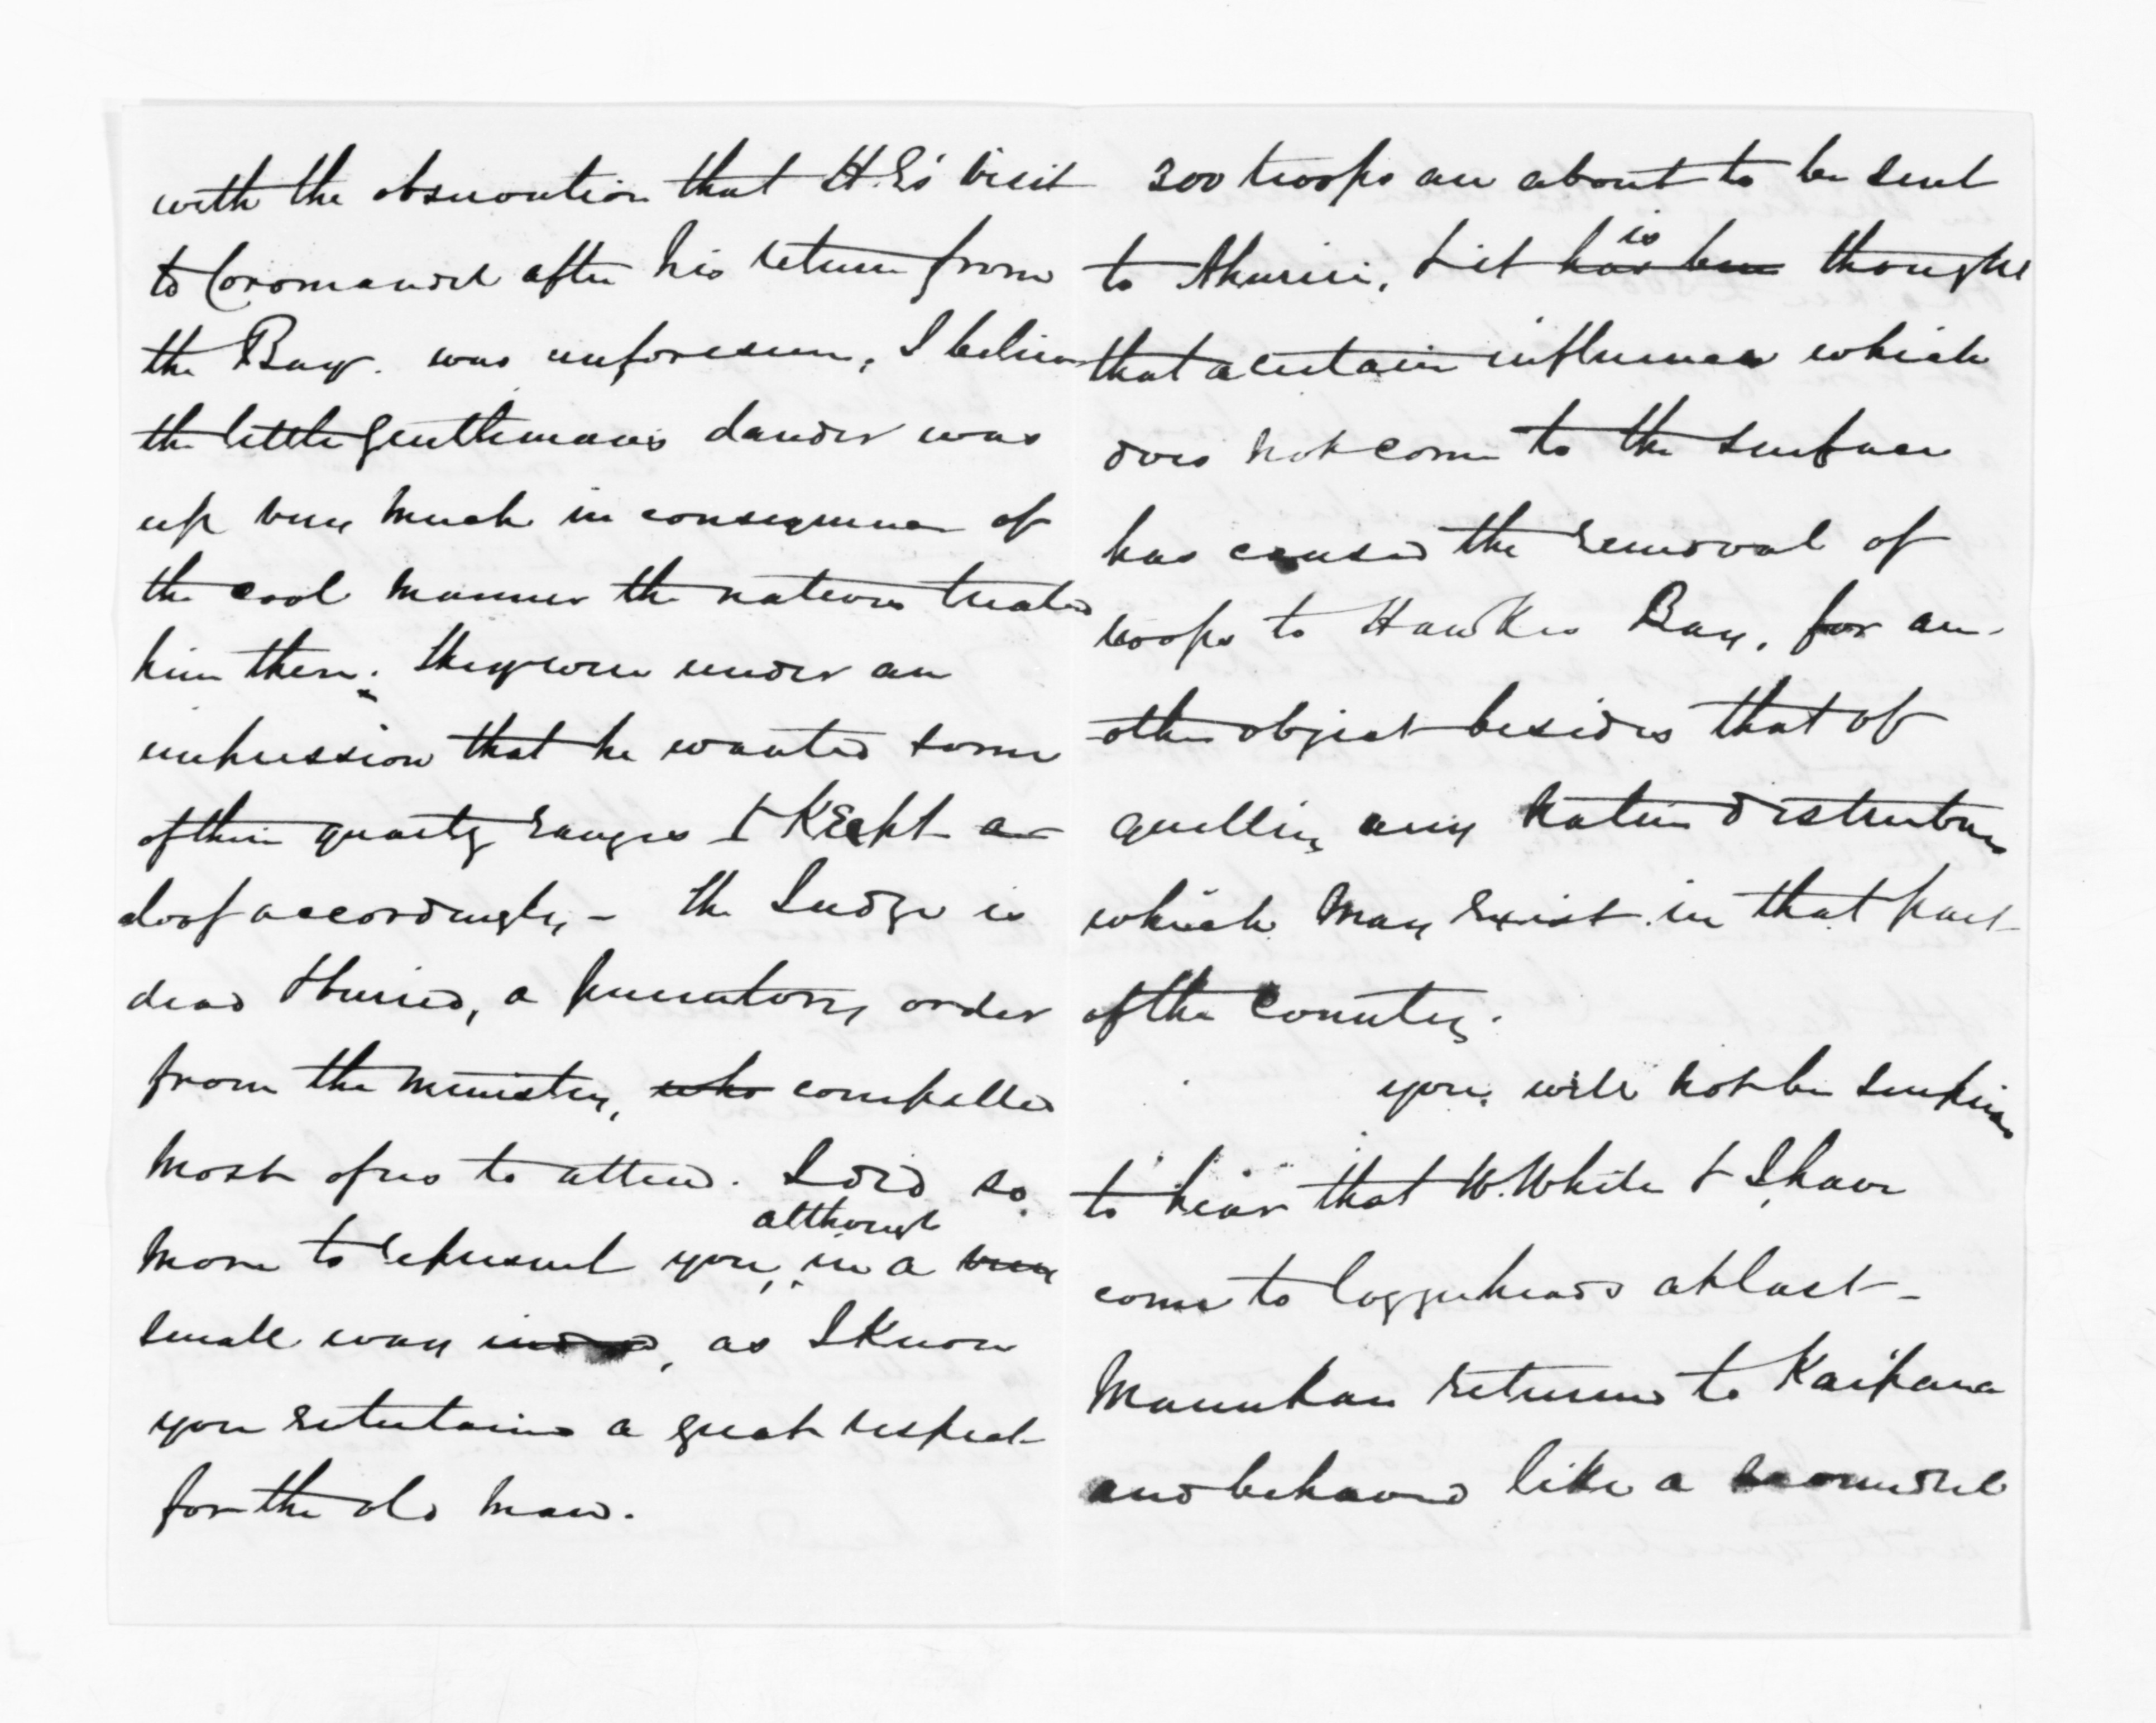 with the observation that H.E's visit
to Coromandel after his return from
the Bay. was unforeseen, I believe
the little gentleman's dander was
up very much in consequence of
the cool manner the natives treated
him there. They were under an
impression that he wanted some
of their quartz ranges & kept a-
loof accordingly, - the Judge is
dead & buried, a premptory order
from the ministry, who compelled
most of us to attend. I did so
although
more to represent you, in a very
small way indeed, as I know
you entertained a great respect
for the old man.
300 troops are about to be sent
is
to Ahuriri, & it has been thought
that a certain influence which
does not come to the surface
has caused the removal of
troops to Hawkes Bay, for an-
other object besides that of
quelling any native disturbances
which may exist in that part
of the country.
you, will not be surprised
to hear that W. White & I have
come to loggerheads at last -
Manukau returned to Kaipara
and behaved like a scoundrel